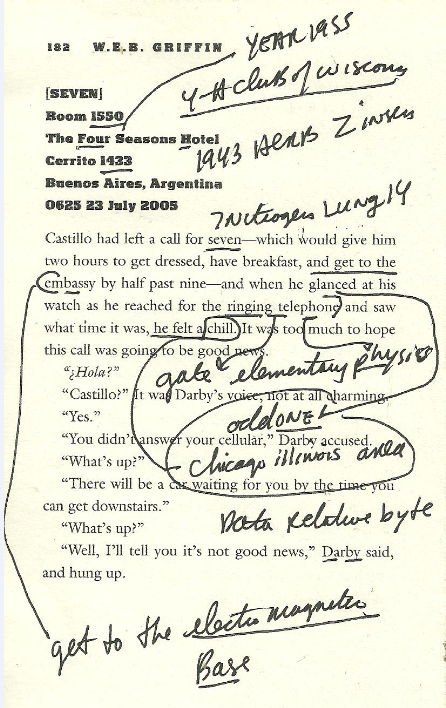 182 W.E.B. GRIFFIN
YEAR 1955
4-H Club of Wiscons
[SEVEN]
Room 1550
The Four Seasons Hotel
Cerrito 1433
1943 HERB Zinser
Buenos Aires, Argentina
0625 23 July 2005
7 Nitrogen Lung 14
Castillo had left a call for seven—which would give him
two hours to get dressed, have breakfast, and get to the
embassy by half past nine—and when he glanced at his
watch as he reached for the ringing telephone and saw
what time it was, he felt a chill. It was too much to hope
this call was going to be good news.
gate elementary physics
“¿Hola?”
“Castillo?” It was Darby’s voice, not at all charming.
“Yes.”
oddONE
“You didn’t answer your cellular,” Darby accused.
“What’s up?”
Chicago illinois area
“There will be a car waiting for you by the time you
can get downstairs.”
Data Relative byte
“What’s up?”
“Well, I’ll tell you it’s not good news,” Darby said,
and hung up.
get to the electro magnetic
Base